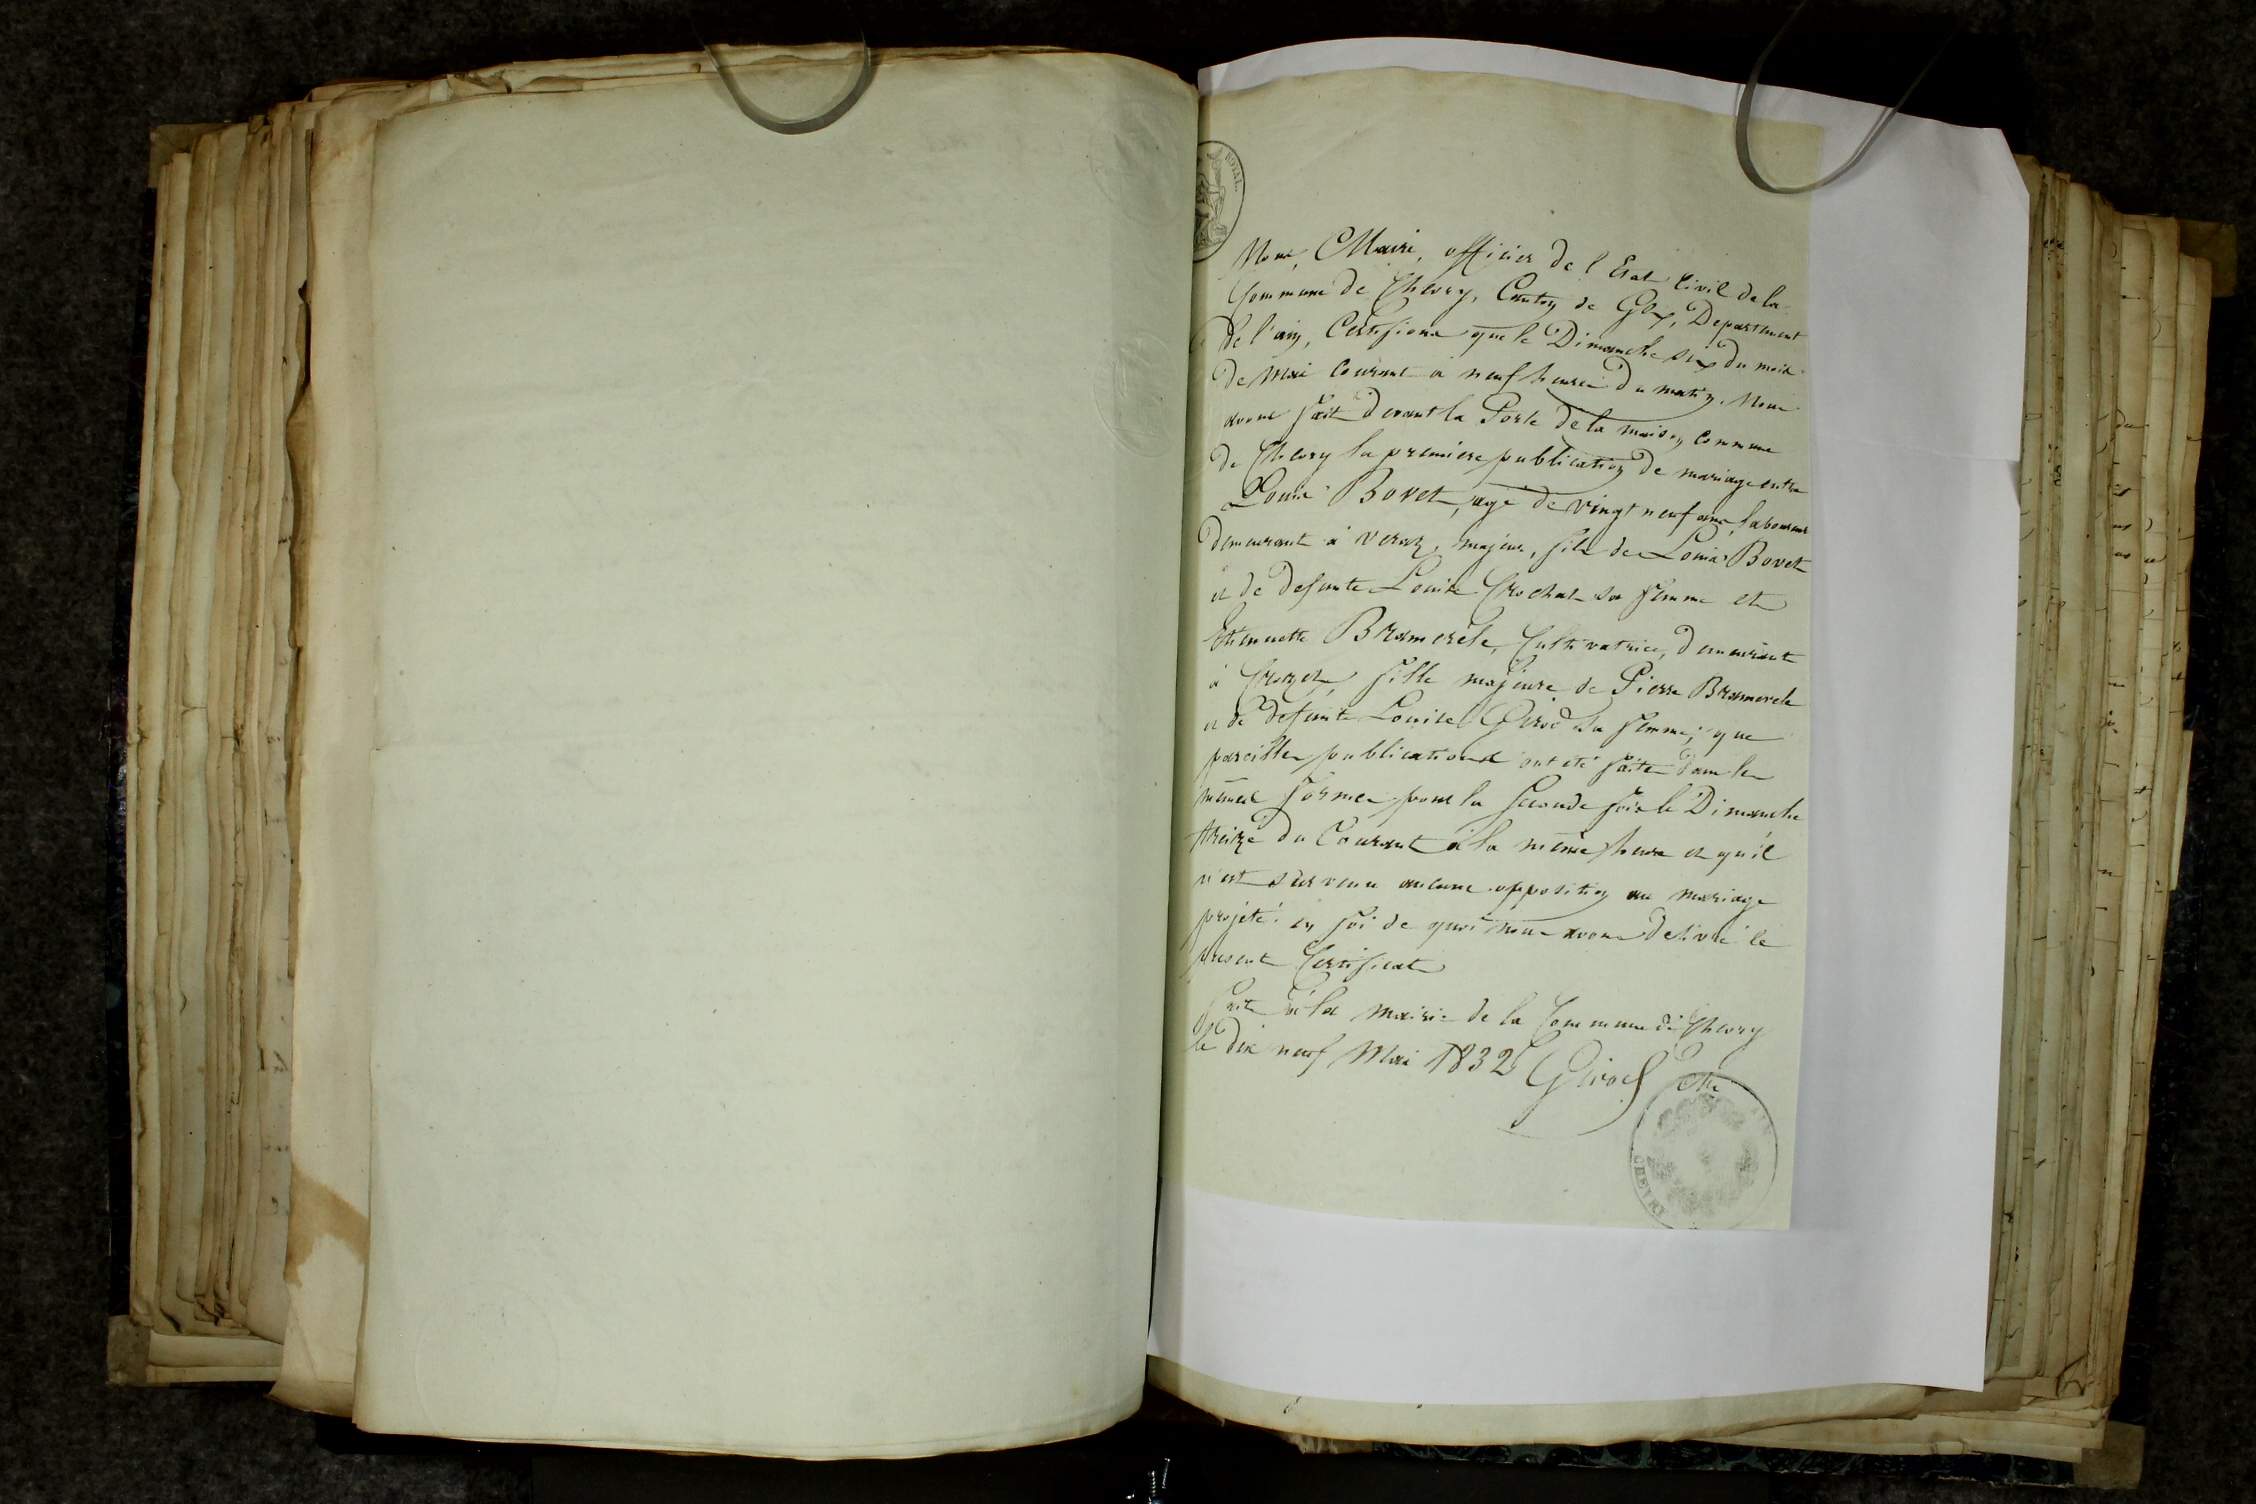 ROYAL.
Nous, Maire, officier de l'Etat Civil de la
Commune de Chevry, Canton de Gex, Departement
de l'ain, Certifions que le Dimanche six du mois
de Mai courant a neuf heures du matin. Nous
avons fait devant la Porte de la maison commune
de Chevry la premiere publication de mariage entre
Louis Bovet, agé de vingt neuf ans, laboureur
demeurant à veraz, majeur, fils de Louis Bovet
et de defunte Louise Crochat sa femme et
Etiennette Bramerele, Cultivatrice, demeurant
à Crozet, fille majeure de Pierre Bramerele
et de defunte Louise Girod sa femme; que
pareilles publications ont été faites dans les
mêmes formes pour la seconde fois le Dimanche
treize du Courant à la même heure et qu'il
n'est survenu aucune opposition au mariage
projeté. en foi de quoi nous avons delivré le
present Certificat
fait à la mairie de la Commune de Chevry
le dix neuf Mai 1832 Girod Me
CHEVRY